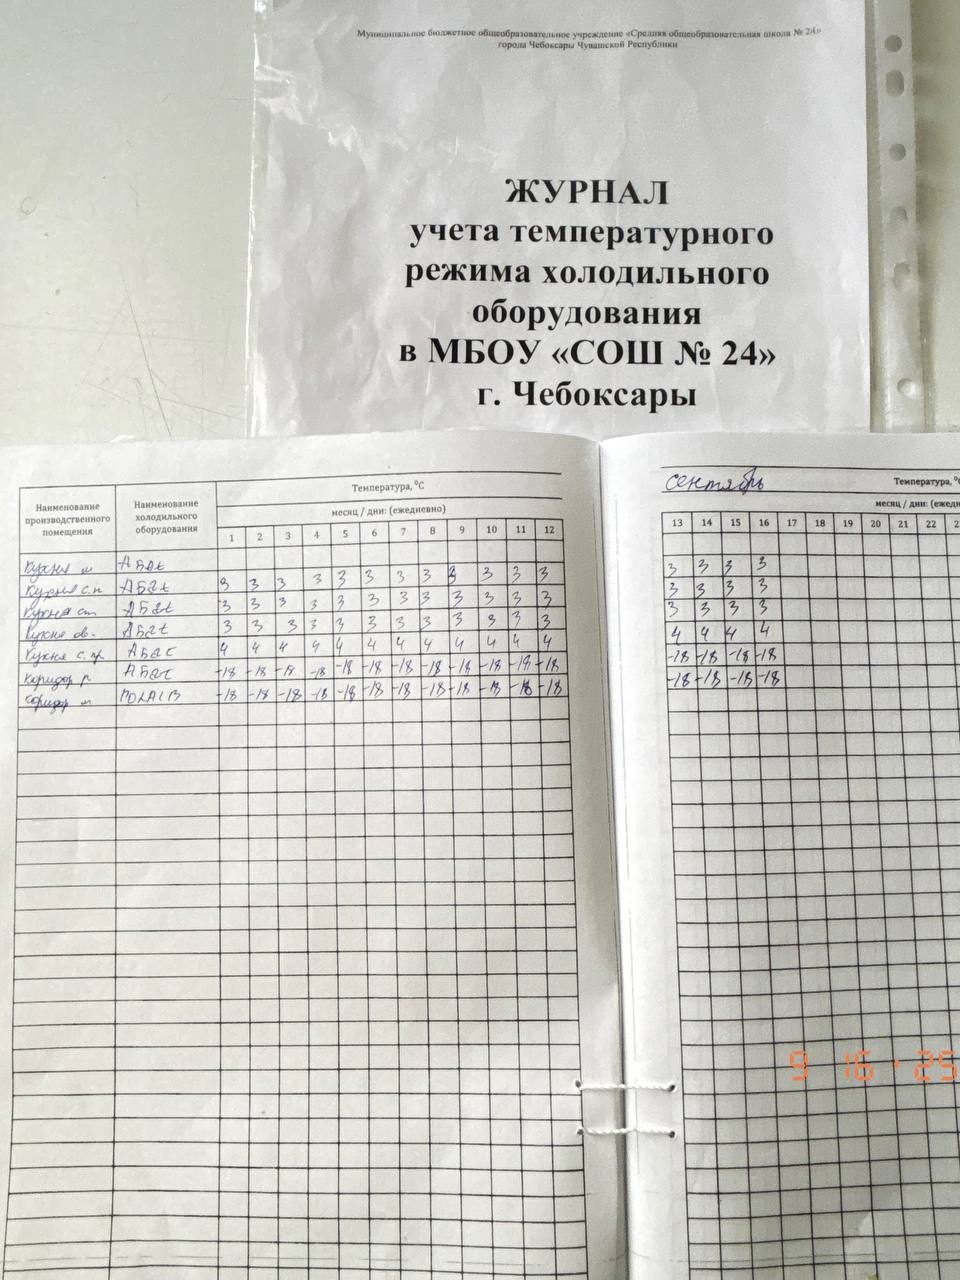 Муниципальное бюджетное общеобразовательное учреждение «Средняя общеобразовательная школа № 24»
города Чебоксары Чувашской Республики
ЖУРНАЛ
учета температурного
режима холодильного
оборудования
в МБОУ «СОШ № 24»
г. Чебоксары
Наименование производственного помещения
Наименование холодильного оборудования
Температура, ⁰С
месяц / дни: (ежедневно)
1 2 3 4 5 6 7 8 9 10 11 12
Кухня м Абат
Кухня с.п Абат 3 3 3 3 3 3 3 3 3 3 3 3
Кухня Абат 3 3 3 3 3 3 3 3 3 3 3 3
Кухня Абат 3 3 3 3 3 3 3 3 3 3 3 3
Кухня Абат 4 4 4 4 4 4 4 4 4 4 4 4
Коридор Абат -18 -18 -18 -18 -18 -18 -18 -18 -18 -18 -18 -18
Коридор м POLAIR -18 -18 -18 -18 -18 -18 -18 -18 -18 -18 -18 -18
сентябрь
Температура, ⁰С
месяц / дни: (ежедн
13 14 15 16 17 18 19 20 21 22
3 3 3 3
3 3 3 3
3 3 3 3
4 4 4 4
-18 -18 -18 -18
-18 -18 -18 -18
9 16 '25